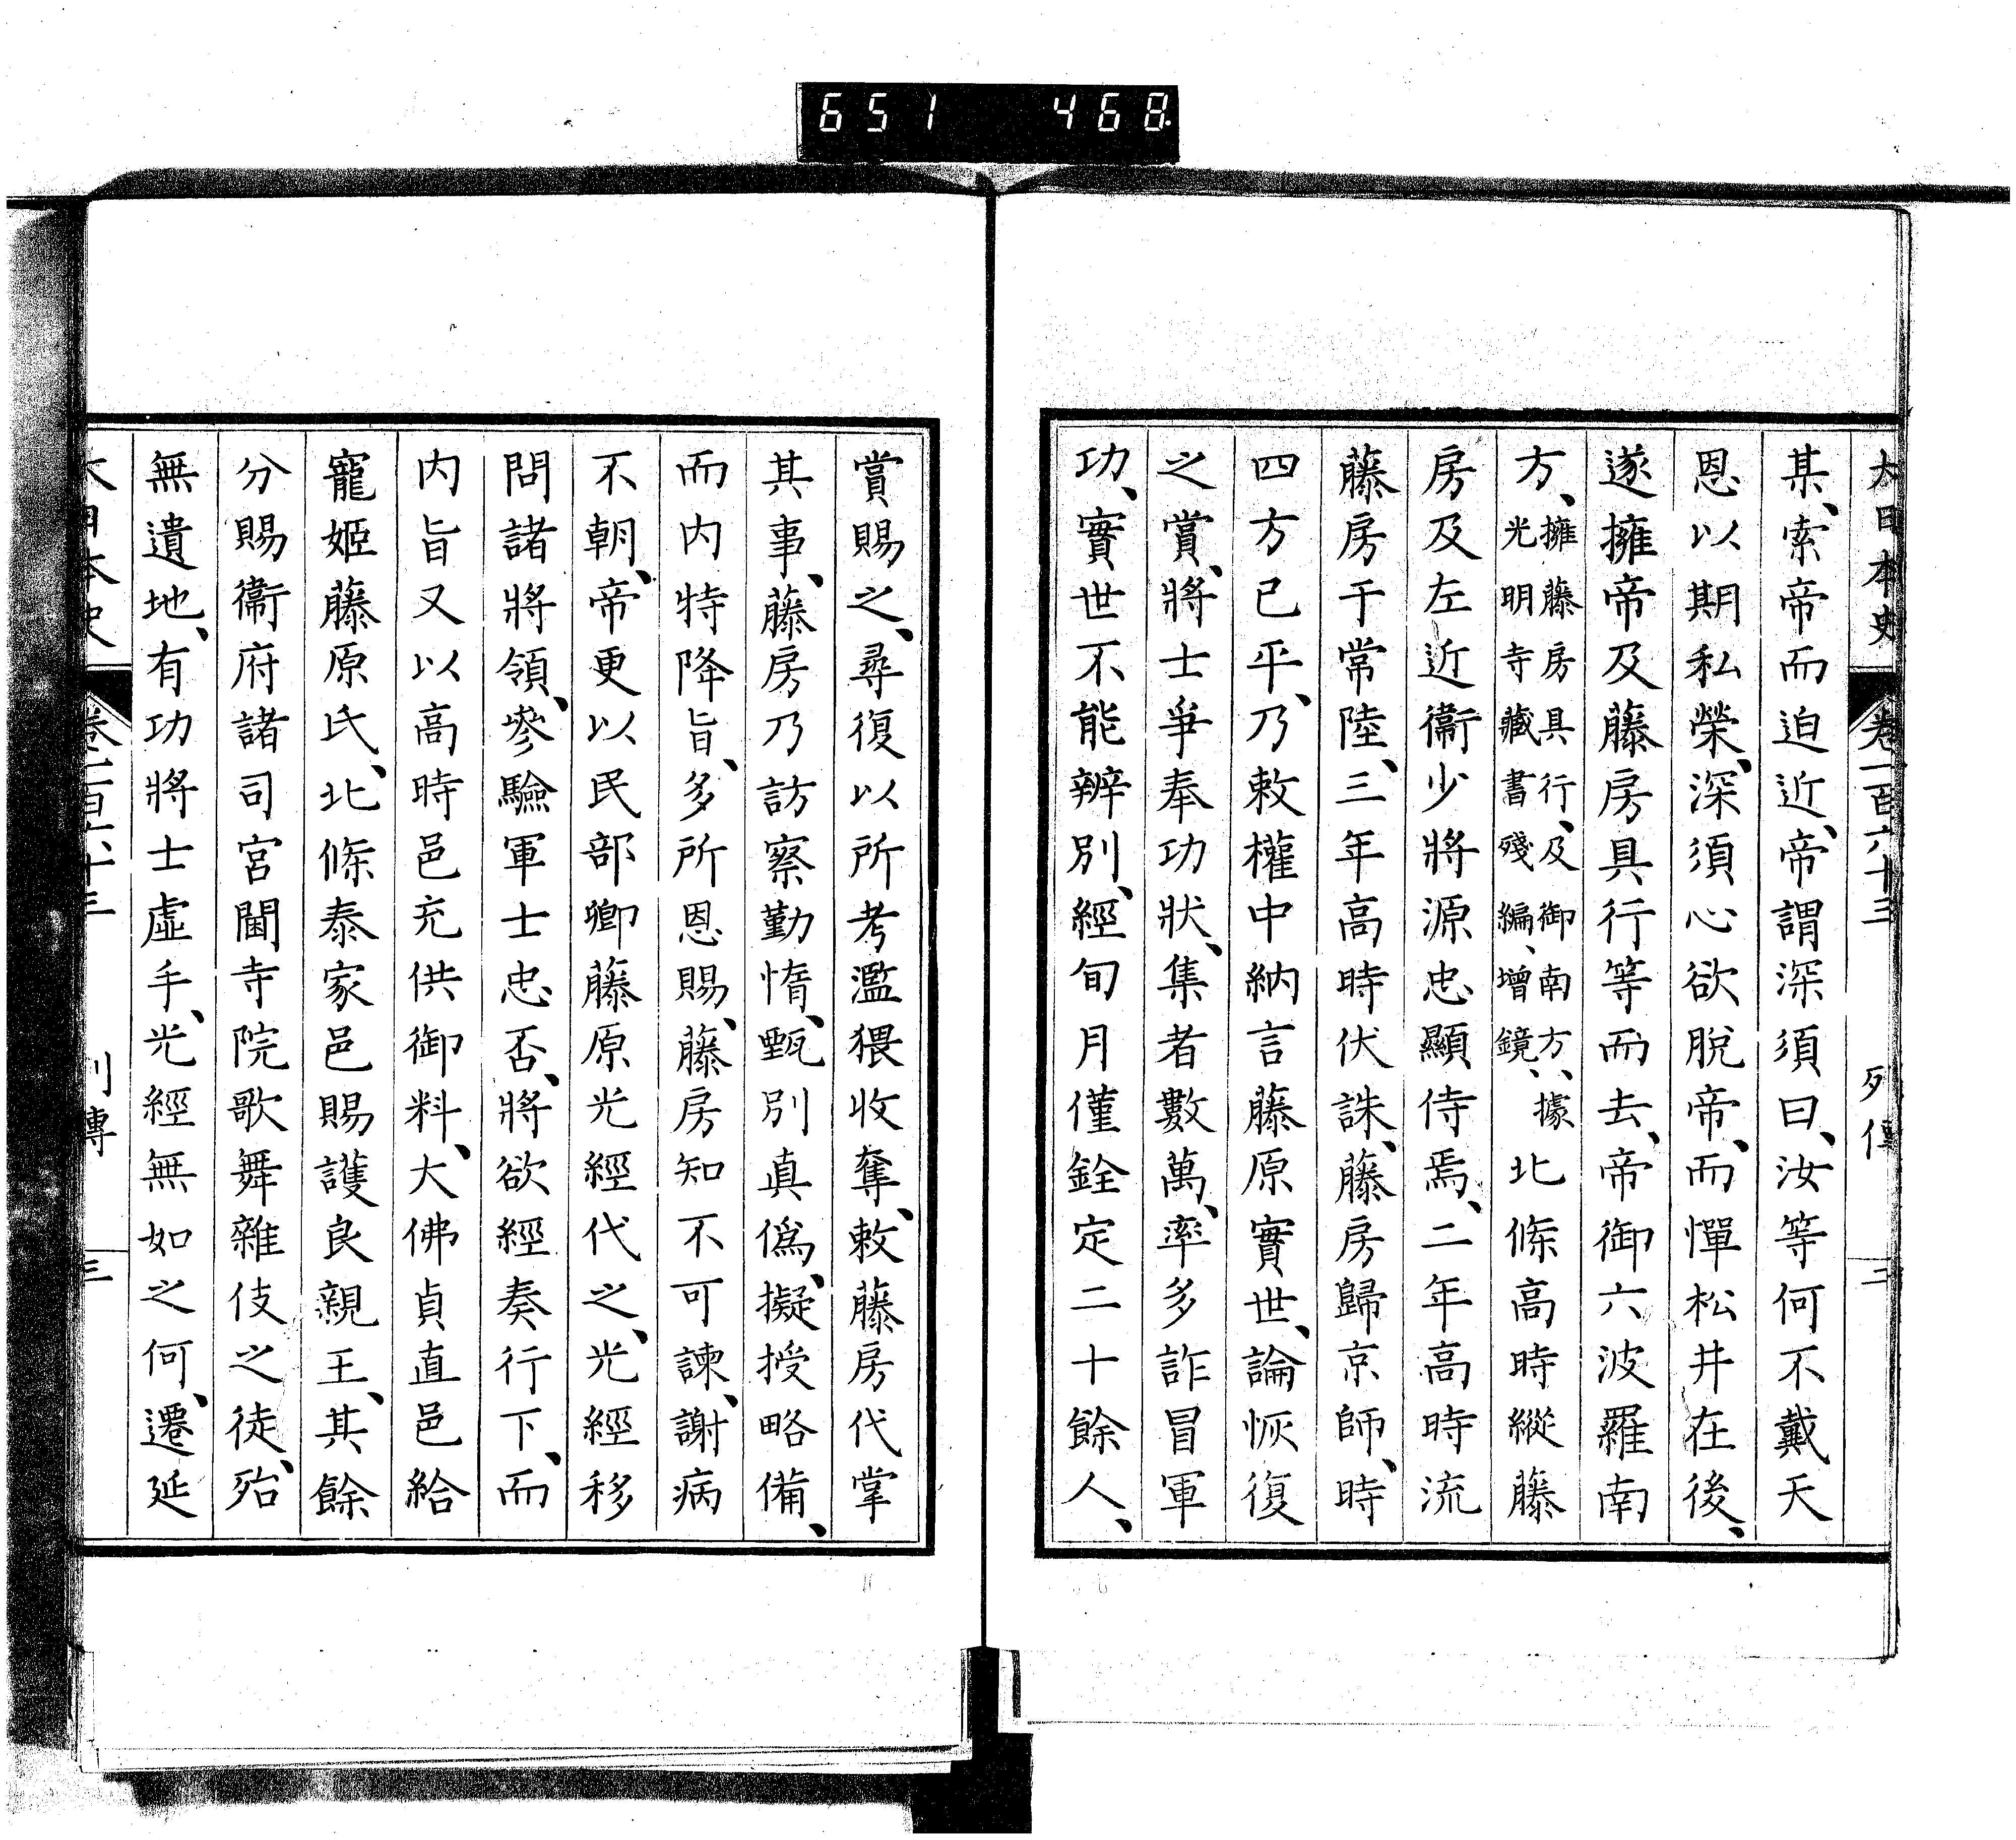 651 468
大日本史 卷一百六十三 列傳 二
某、索帝而迫近、帝謂深須曰、汝等何不戴天
恩以期私榮、深須心欲脫帝、而憚松井在後、
遂擁帝及藤房具行等而去、帝御六波羅南
方、擁藤房具行、及御南方、據光明寺藏書殘編、增鏡、北條高時縱藤
房及左近衞少將源忠顯侍焉、二年高時流
藤房于常陸、三年高時伏誅、藤房歸京師、時
四方已平、乃敕權中納言藤原實世、論恢復
之賞、將士爭奉功狀、集者數萬、率多詐冒軍
功、實世不能辨別、經旬月僅銓定二十餘人、
賞賜之、尋復以所考濫猥收奪、敕藤房代掌
其事、藤房乃訪察勤惰、甄別真僞、擬授略備、
而內特降旨、多所恩賜、藤房知不可諫、謝病
不朝、帝更以民部卿藤原光經代之、光經移
問諸將領、參驗軍士忠否、將欲經奏行下、而
內旨又以高時邑充供御料、大佛貞直邑給
寵姬藤原氏、北條泰家邑賜護良親王、其餘
分賜衞府諸司宮闈寺院歌舞雜伎之徒、殆
無遺地、有功將士虛手、光經無如之何、遷延
大日本史 卷一百六十三 列傳 三